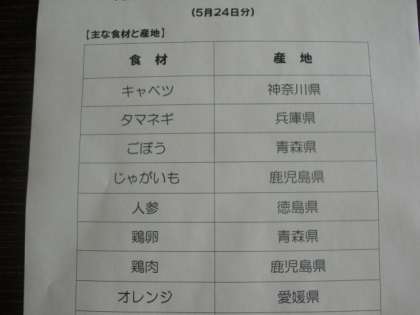 (5月24日分)
【主な食材と産地】
食材 産地
キャベツ 神奈川県
タマネギ 兵庫県
ごぼう 青森県
じゃがいも 鹿児島県
人参 徳島県
鶏卵 青森県
鶏肉 鹿児島県
オレンジ 愛媛県